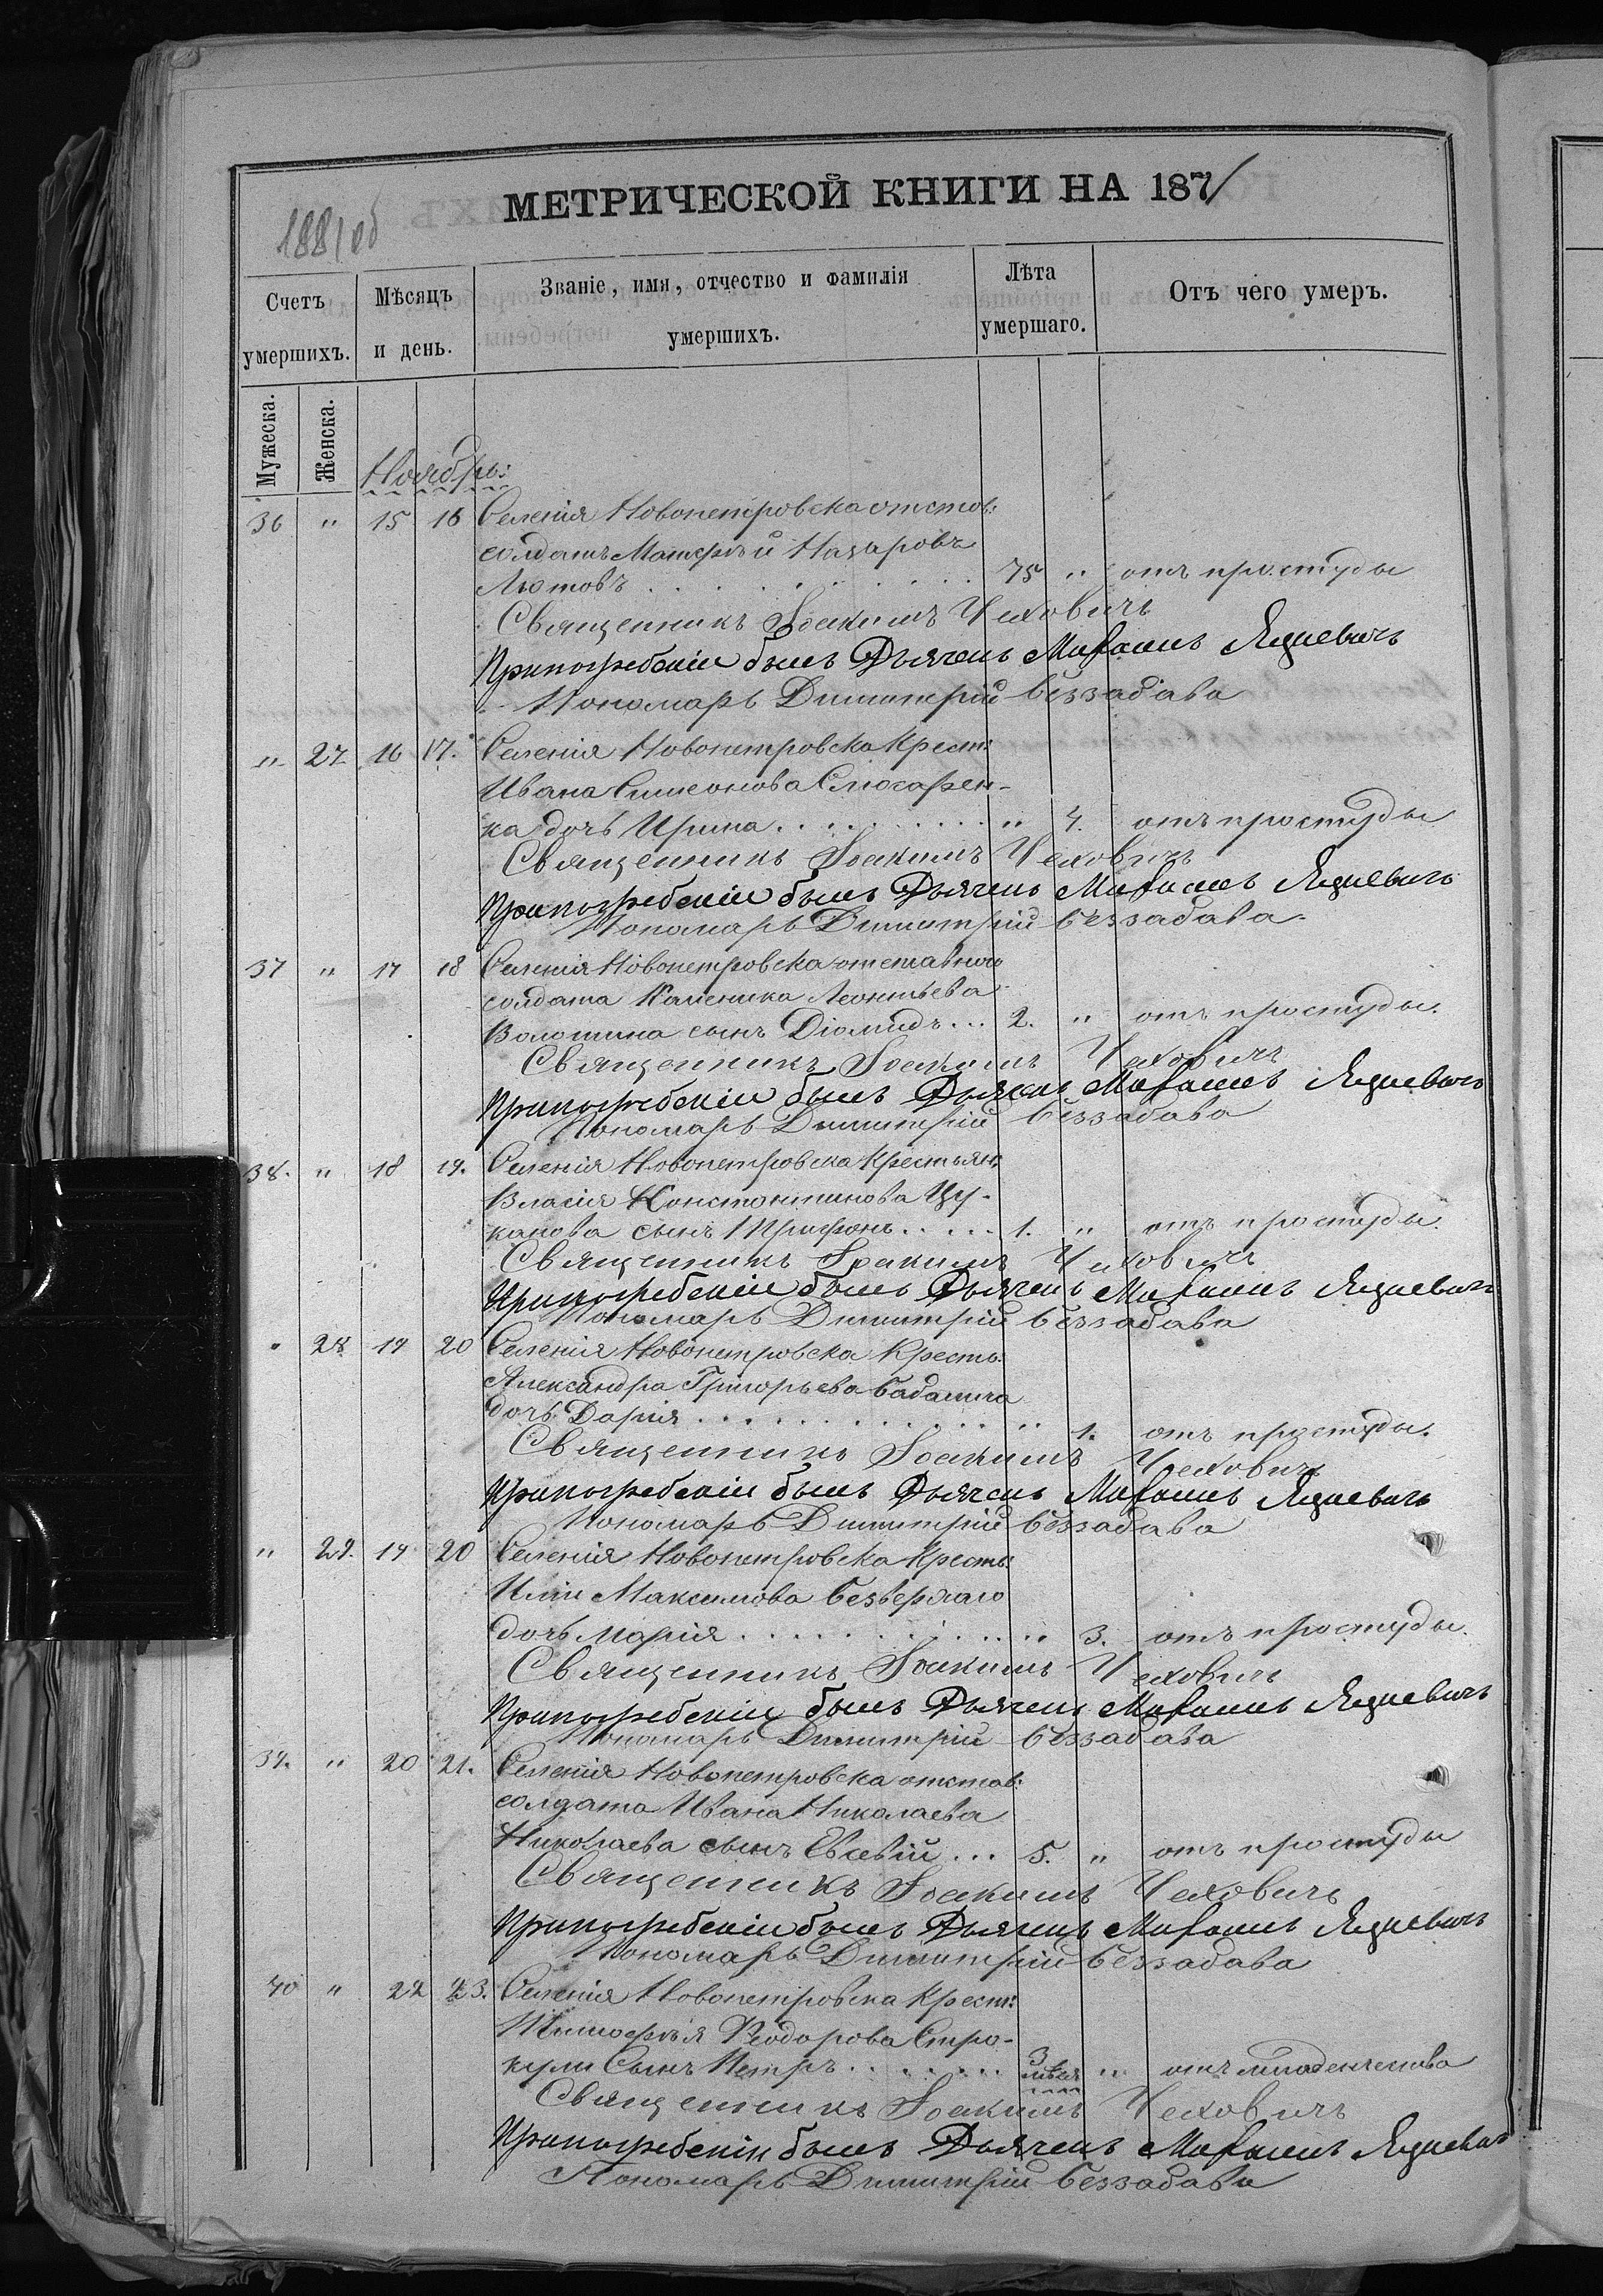 МЕТРИЧЕСКОЙ КНИГИ НА 1871
1881об
Счетъ умершихъ.
Мѣсяцъ и день.
Званіе, имя, отчество и фамилія умершихъ.
Лѣта умершаго.
Отъ чего умеръ.
Мужеска.
Женска.
Ноябрь:
36 " 15 16 Селенія Новопетровска отстав:
солдатъ Матѳѣй Назаровъ
Лютовъ . . . . . . . . . 75 " отъ простуды
Священникъ Іоакимъ Чехович
При погребеніи былъ Дьячекъ Михаилъ Яцкевичъ
Пономарь Димитрій Беззабава
" 27 16 17. Селенія Новопетровска Крест:
Ивана Симеонова Слюсарен-
ка дочь Ирина . . . . . . . . . " 4. отъ простуды
Священникъ Іоакимъ Чеховичъ
При погребеніи былъ Дьячекъ Михаилъ Яцкевичъ
Пономарь Димитрій Беззабава
37 " 17 18 Селенія Новопетровска отставного
солдата Каленика Леонтьева
Волошина сынъ Діомидъ . . . 2. " отъ простуды.
Священникъ Іоакимъ Чеховичъ
При погребеніи былъ Дьячекъ Михаилъ Яцкевичъ
Пономарь Димитрій Беззабава
38. " 18 19. Селенія Новопетровска Крестьян:
Власія Константинова Цу-
канова сынъ Трифонъ . . . . . 1. " отъ простуды.
Священникъ Іоакимъ Чеховичъ
При погребеніи былъ Дьячекъ Михаилъ Яцкевичъ
Пономарь Димитрій Беззабава
" 28 19 20 Селенія Новопетровска Кресть:
Александра Григорьева
дочь Дарія . . . . . . . . . . . . " 1. отъ простуды.
Священникъ Іоакимъ Чеховичъ
При погребеніи былъ Дьячекъ Михаилъ Яцкевичъ
Пономарь Димитрій Беззабава
" 29. 19 20 Селенія Новопетровска Кресть:
Иліи Максимова Безверхаго
дочь Марія . . . . . . . . . . . " 3. отъ простуды.
Священникъ Іоакимъ Чеховичъ
При погребеніи былъ Дьячекъ Михаилъ Яцкевичъ
Пономарь Димитрій Беззабава
39. " 20 21. Селенія Новопетровска отстав:
солдата Ивана Николаева
Николаева сынъ Евсевій . . . 5. " отъ простуды
Священникъ Іоакимъ Чеховичъ
При погребеніи былъ Дьячекъ Михаилъ Яцкевичъ
Пономарь Димитрій Беззабава
40 " 22 23. Селенія Новопетровска Крест:
Тимоѳѣя Ѳеодорова Стро-
кули Сынъ Петръ . . . . . . . 3 " отъ младенчества
Священникъ Іоакимъ Чеховичъ
При погребеніи былъ Дьячекъ Михаилъ Яцкевичъ
Пономарь Димитрій Беззабава